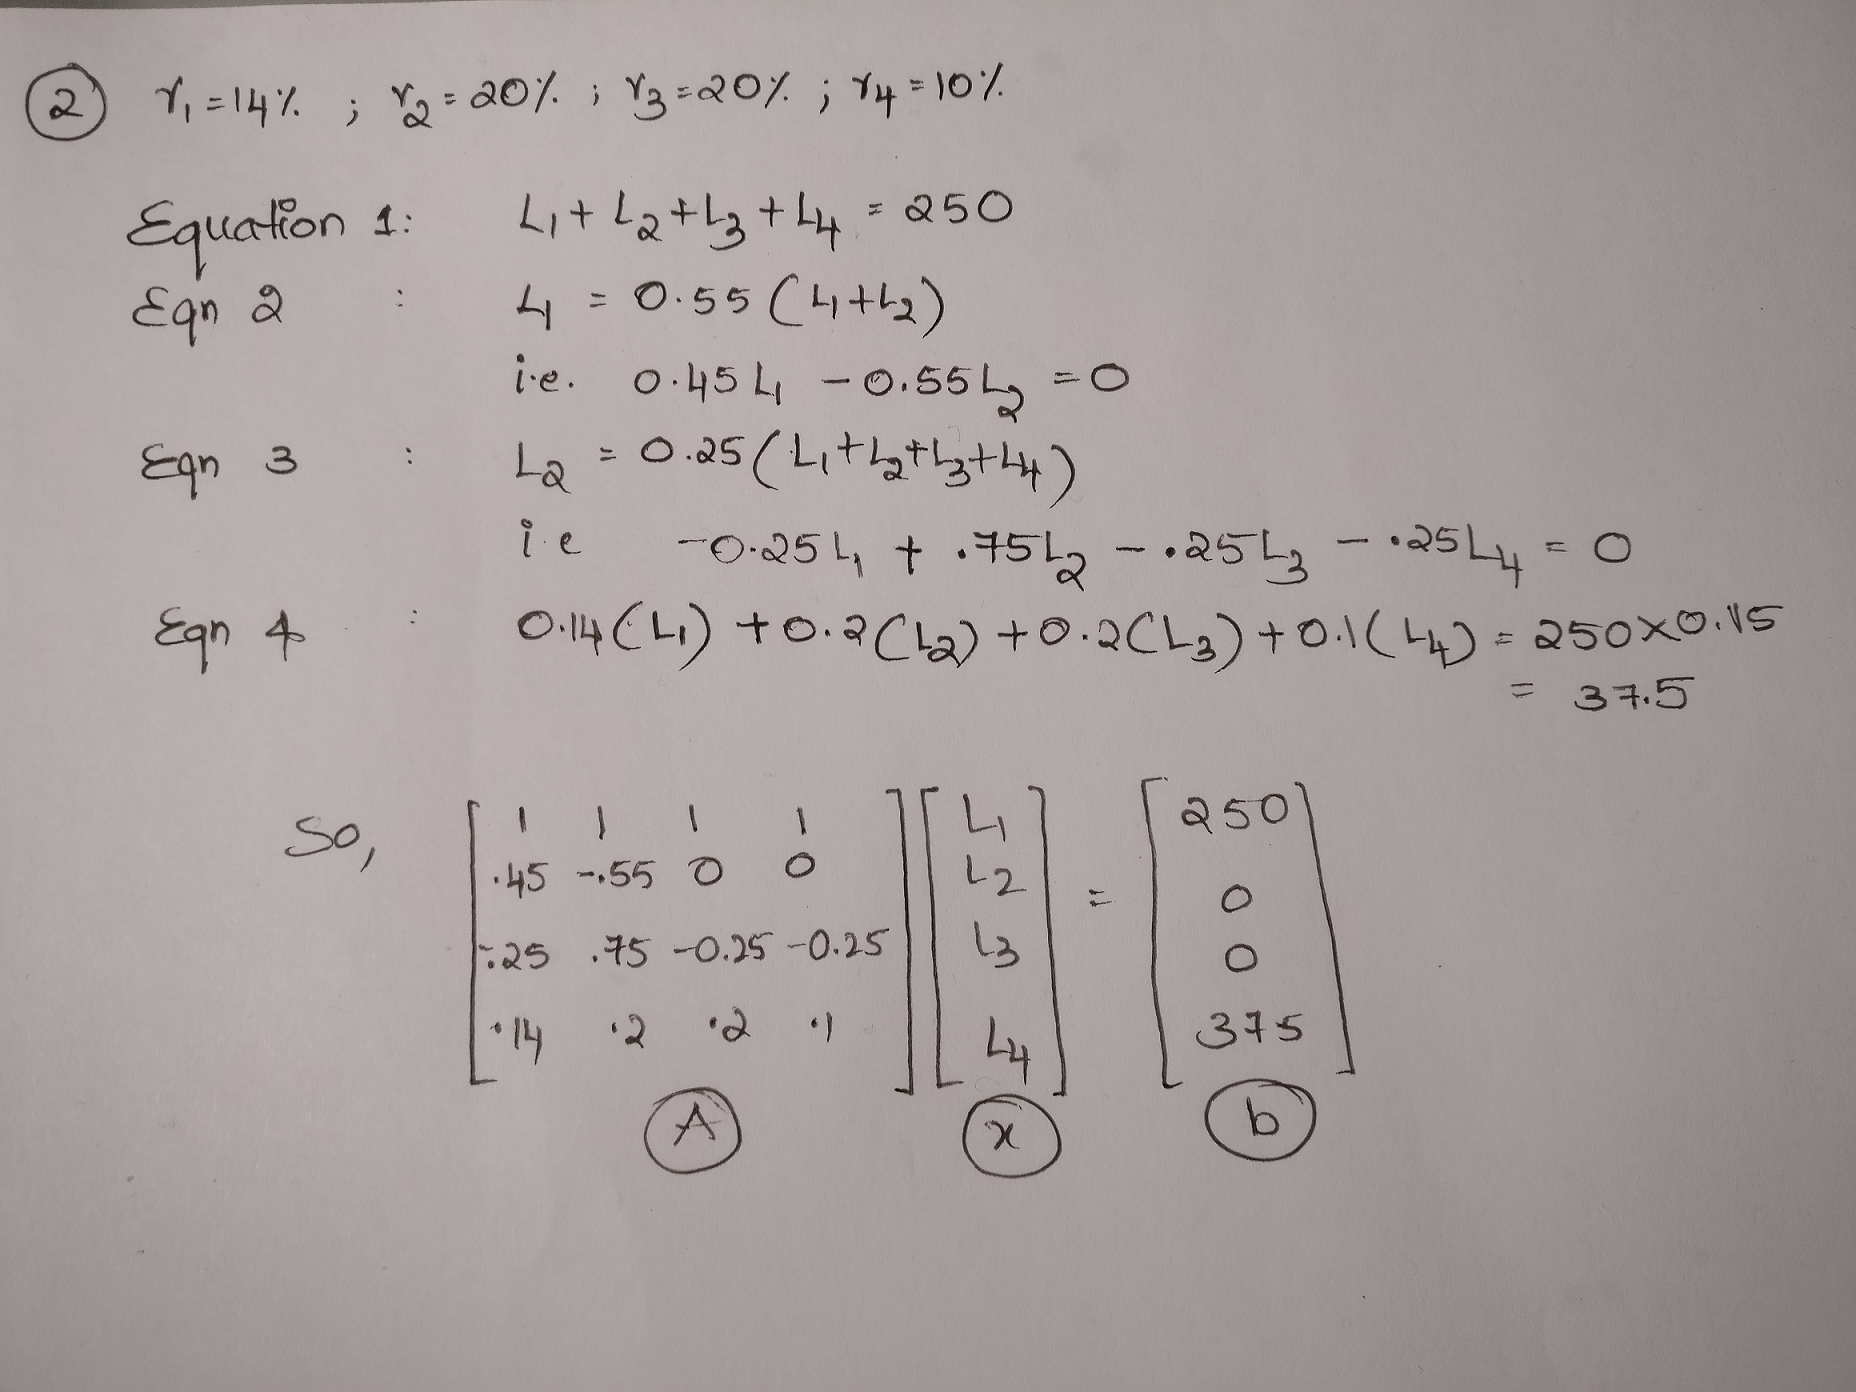 ② r₁ = 14% ; r₂ = 20% ; r₃ = 20% ; r₄ = 10%
Equation 1: L₁ + L₂ + L₃ + L₄ = 250
Eqn 2 : L₁ = 0.55 (L₁ + L₂)
i.e. 0.45 L₁ - 0.55 L₂ = 0
Eqn 3 : L₂ = 0.25 (L₁ + L₂ + L₃ + L₄)
i.e -0.25 L₁ + .75 L₂ - .25 L₃ - .25 L₄ = 0
Eqn 4 : 0.14 (L₁) + 0.2 (L₂) + 0.2 (L₃) + 0.1 (L₄) = 250 x 0.15
= 37.5
So, [ 1 1 1 1 ] [ L₁ ] = [ 250 ]
[ .45 -.55 0 0 ] [ L2 ] [ 0 ]
[ -.25 .75 -0.25 -0.25 ] [ L3 ] [ 0 ]
[ .14 .2 .2 .1 ] [ L4 ] [ 375 ]
A x b